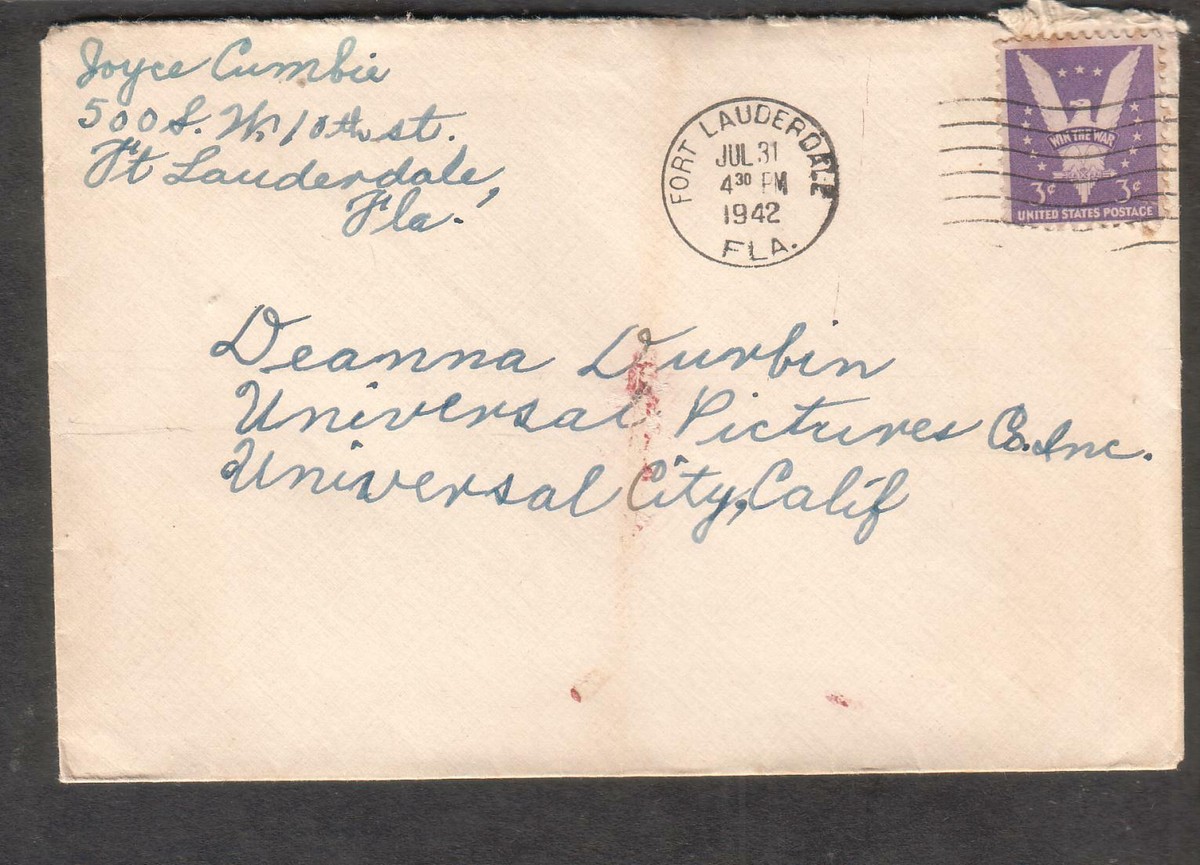 Joyce Cumbie
500 S. W. 10th st.
Ft Lauderdale,
Fla.
FORT LAUDERDALE
JUL 31
4 30 PM
1942
FLA.
WIN THE WAR
3¢ 3¢
UNITED STATES POSTAGE
Deanna Durbin
Universal Pictures Co. Inc.
Universal City, Calif